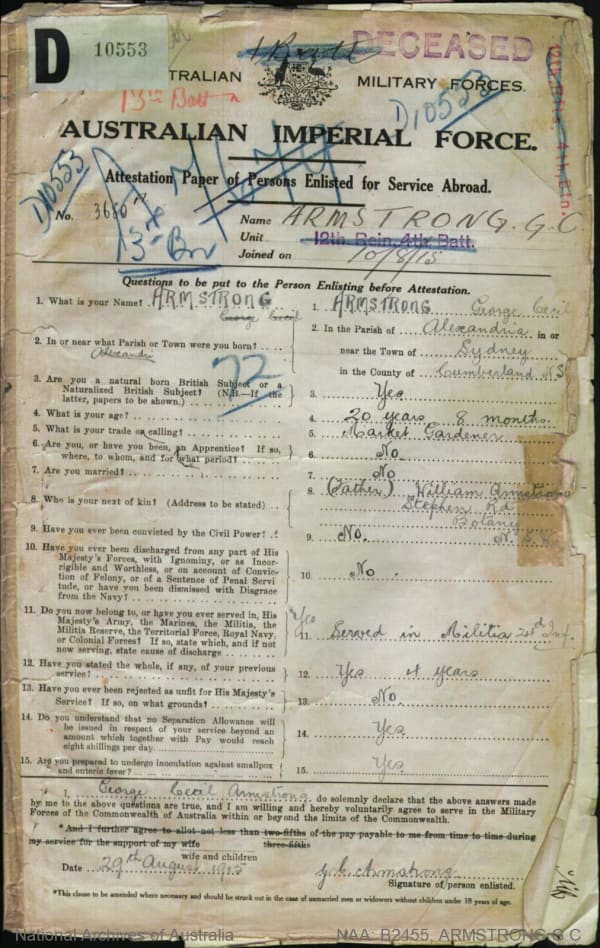 D 10553
DECEASED
AUSTRALIAN MILITARY FORCES.
13th Batt
D10553
AUSTRALIAN IMPERIAL FORCE.
Attestation Paper of Persons Enlisted for Service Abroad.
D10553
No. 3680
Name ARMSTRONG. G. C
13th Bn
Unit 12th Rein. 4th Batt.
Joined on 10/8/15
Questions to be put to the Person Enlisting before Attestation.
1. What is your Name? ARMSTRONG George Cecil
1. ARMSTRONG George Cecil
2. In or near what Parish or Town were you born?
Alexandri
2. In the Parish of Alexandria in or
near the Town of Sydney
in the County of Cumberland NS
72
3. Are you a natural born British Subject or a
Naturalized British Subject? (N.B.—If the
latter, papers to be shown.)
3. Yes
4. What is your age?
4. 20 years 8 months.
5. What is your trade or calling?
5. Market Gardener
6. Are you, or have you been, an Apprentice? If so,
where, to whom, and for what period?
6. No.
7. Are you married?
7. No
8. Who is your next of kin? (Address to be stated)
8. (Father) William Armstrong
Stephen Rd
Botany
N. S. W.
9. Have you ever been convicted by the Civil Power?
9. No.
10. Have you ever been discharged from any part of His
Majesty's Forces, with Ignominy, or as Incor-
rigible and Worthless, or on account of Convic-
tion of Felony, or of a Sentence of Penal Servi
tude, or have you been dismissed with Disgrace
from the Navy?
10. No.
11. Do you now belong to, or have you ever served in, His
Majesty's Army, the Marines, the Militia, the
Militia Reserve, the Territorial Force, Royal Navy,
or Colonial Forces? If so, state which, and if not
now serving, state cause of discharge
Yes
11. Served in Militia Inf.
12. Have you stated the whole, if any, of your previous
service?
12. Yes 4 years
13. Have you ever been rejected as unfit for His Majesty's
Service? If so, on what grounds?
13. No.
14. Do you understand that no Separation Allowance will
be issued in respect of your service beyond an
amount which together with Pay would reach
eight shillings per day
14. Yes
15. Are you prepared to undergo inoculation against smallpox
and enteric fever?
15. Yes
I, George Cecil Armstrong do solemnly declare that the above answers made
by me to the above questions are true, and I am willing and hereby voluntarily agree to serve in the Military
Forces of the Commonwealth of Australia within or beyond the limits of the Commonwealth.
*And I further agree to allot not less than two-fifths of the pay payable to me from time to time during
three-fifths
my service for the support of my wife
wife and children
Date 29th August 1915
G. C. Armstrong
Signature of person enlisted.
*This clause to be amended where necessary and should be struck out in the case of unmarried men or widowers without children under 18 years of age.
National Archives of Australia
NAA: B2455, ARMSTRONG G C